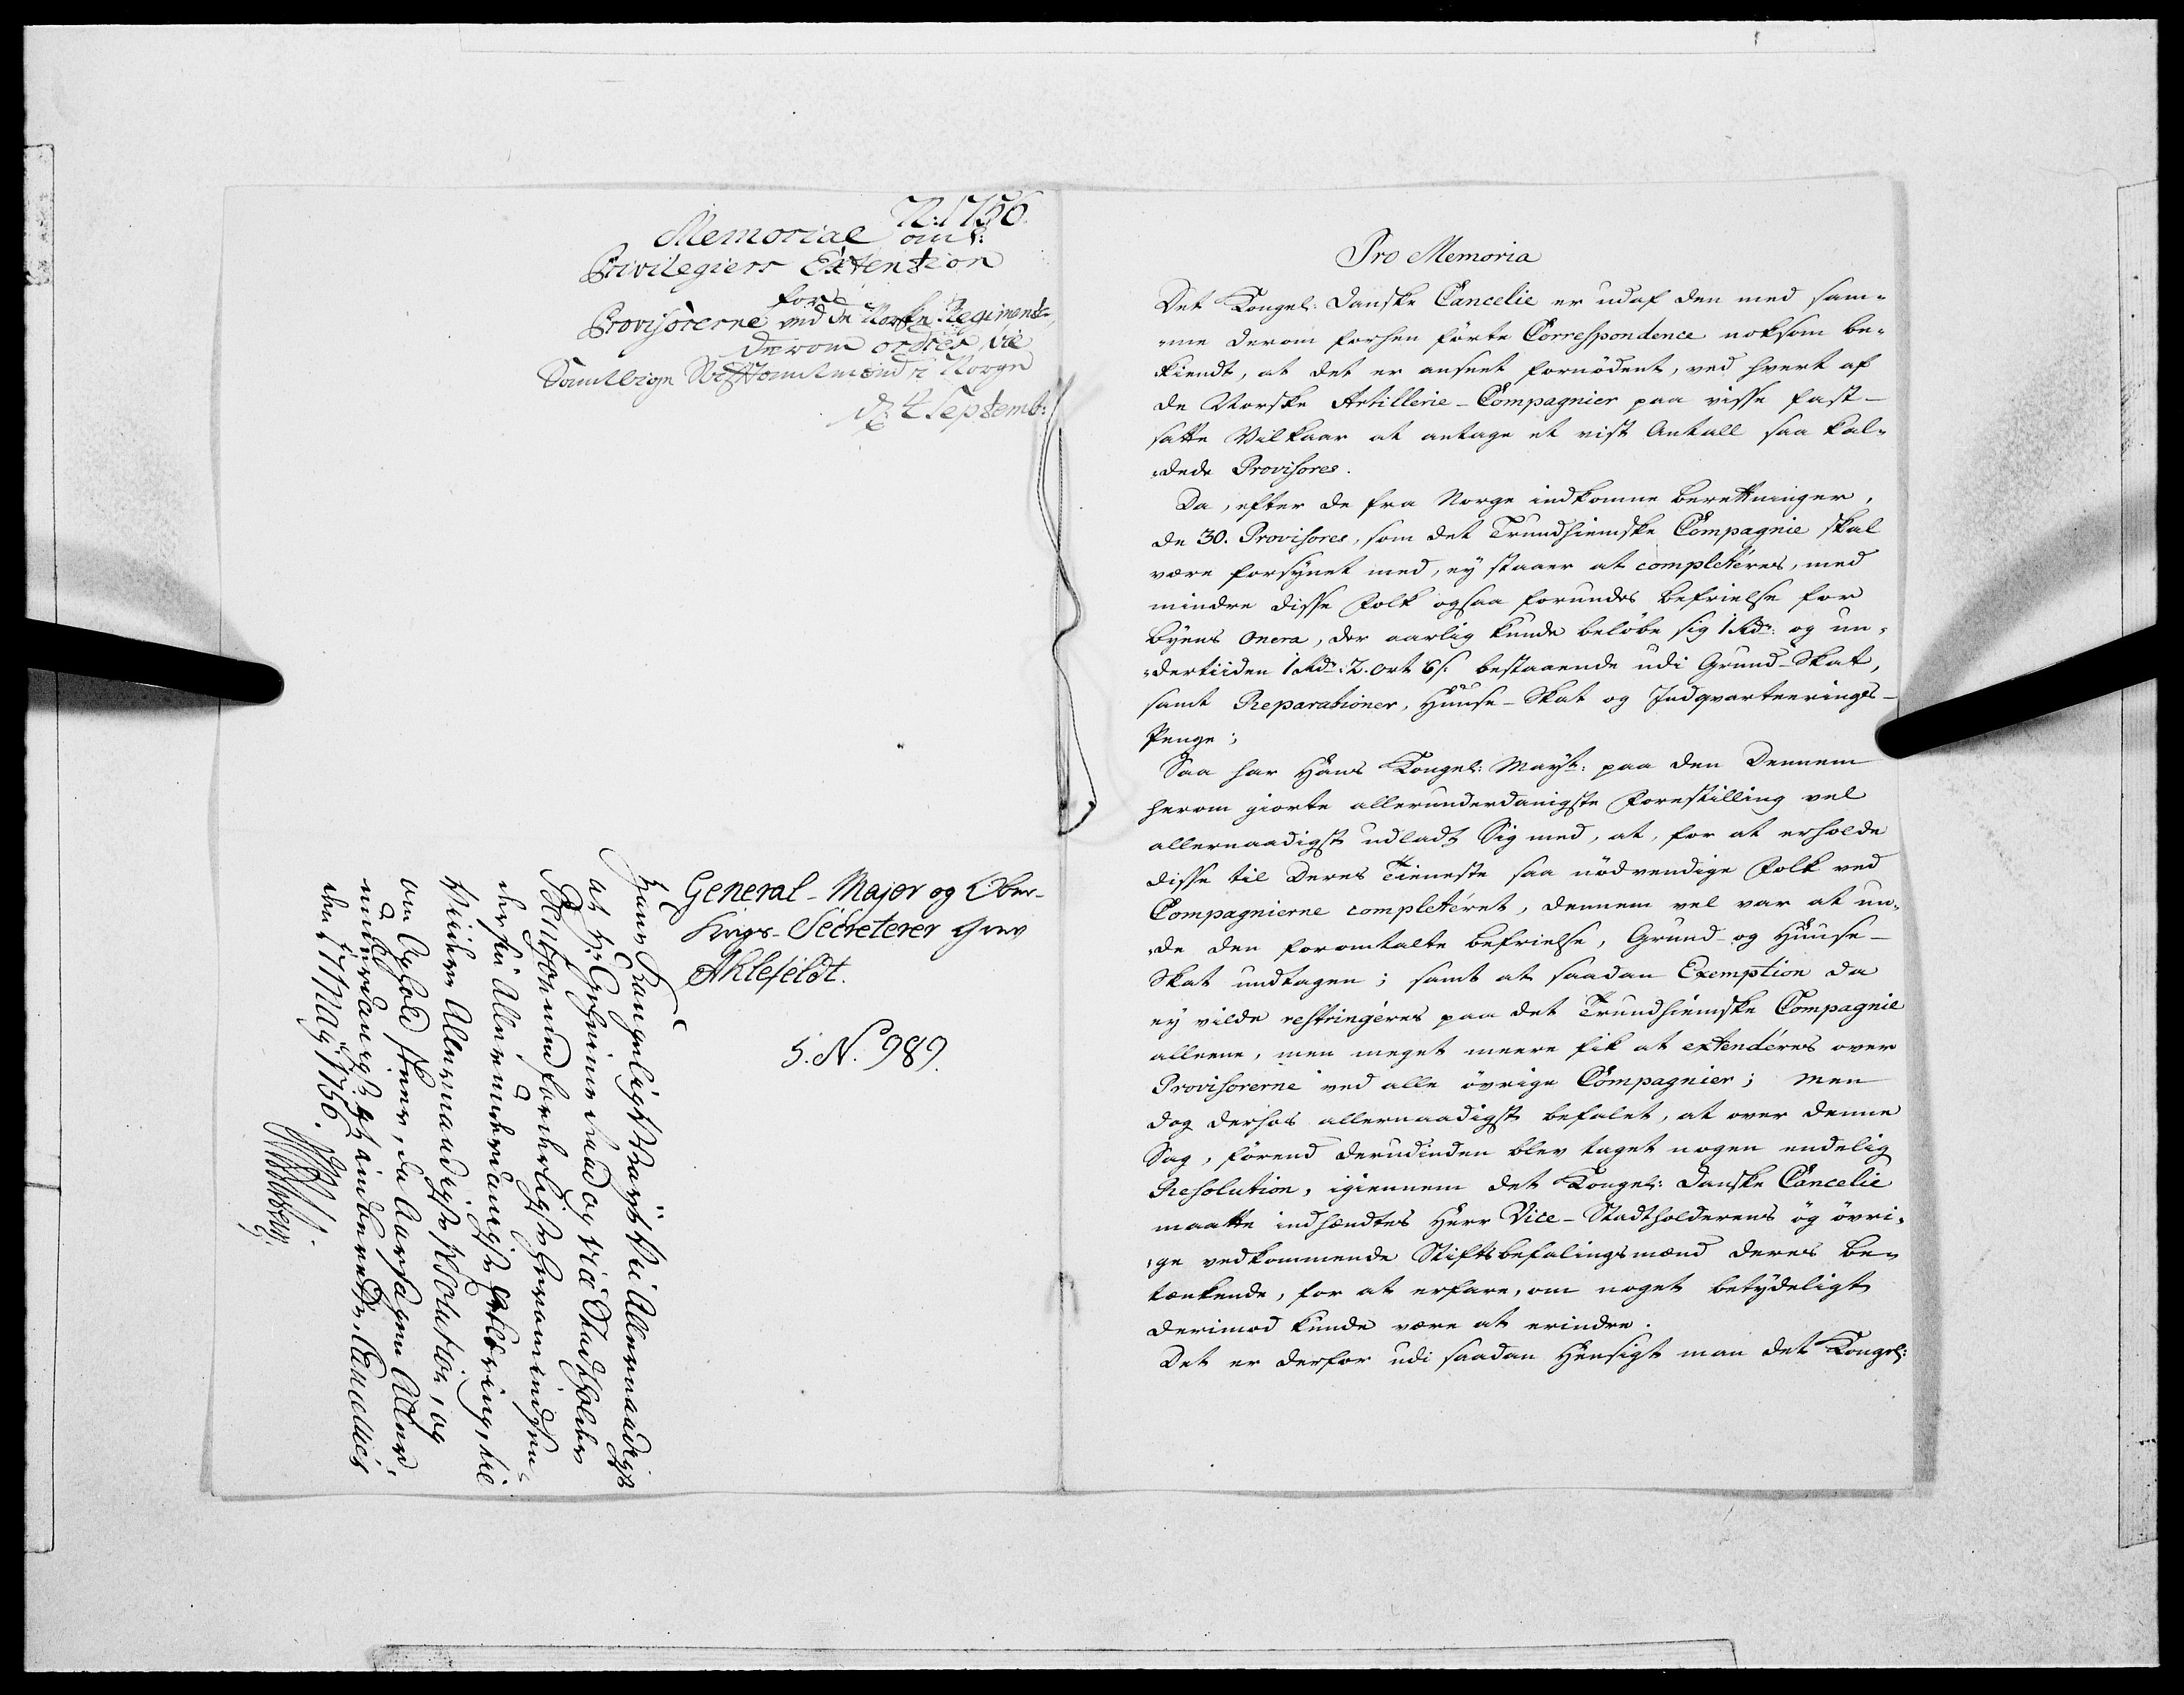 N: 1756.
Memorial om
Privilegiers Extention
for
Provisorerne ved de Norske Regimenter,
derom ordres, til
Samtlige Stiftamtmænd i Norge
d: 4 Septemb:
General-Major og Ober-
Krigs-Secreterer Grev
Ahlefeldt.
5. N. 989.
Hans Kongelig Mayst: vil Allernaadigst
at Hr: Geheime Raad og Vice Stadtholder
skal som forderligst herom indsen-
de sin Allerunderdanigste Erklæring, til
Videre Allernaadigste Resolution, og
om Ophold skeer, da Aarsagen Aller-
underdanigst at indberette. Cancellie
den 7 Maij 1756.
Pro Memoria
Det Kongel: Danske Cancelie er udaf den med sam-
-me derom forhen førte Correspondence noksom be-
kiendt, at det er anseet fornødent, ved hvert af
de Norske Artillerie-Compagnier paa visse fast-
satte Vilkaar at antage et vist Antall saa kal-
-dede Provisores.
Da, efter de fra Norge indkomne Beretninger,
de 30. Provisores, som det Trundhiemske Compagnie skal
være forsynet med, ey staaer at completéres, med
mindre disse Folk ogsaa forundes befrielse for
Byens Onera, der aarlig kunde beløbe sig 1 Rdr: og un-
-dertiiden 1 Rdr: 2. ort 6 s: bestaaende udi Grund-Skat,
samt Reparationer, Huuse-Skat og Indqvarteerings-
Penge;
Saa har Hans Kongel: Mayst: paa den Dennem
herom giorte allerunderdanigste Forestilling vel
allernaadigst udladt Sig med, at, for at erholde
disse til Deres Tieneste saa nødvendige Folk ved
Compagnierne completéret, Dennem vel var at un-
-de den foromtalte befrielse, Grund- og Huuse-
Skat undtagen; samt at saadan Exemption da
ey vilde restringéres paa det Trundhiemske Compagnie
alleene, men meget meere fik at extendéres over
Provisorerne ved alle øvrige Compagnier; Men
dog derhos allernaadigst befalet, at over denne
Sag, førend derudinden blev taget nogen endelig
Resolution, igiennem det Kongel: Danske Cancelie
maatte indhendtes Herr Vice-Stadtholderens og øvri-
-ge vedkommende Stiftsbefalingsmænd deres Be-
tænkende, for at erfare, om noget betydeligt
derimod kunde være at erindre.
Det er derfor udi saadan Hensigt man det Kongel: